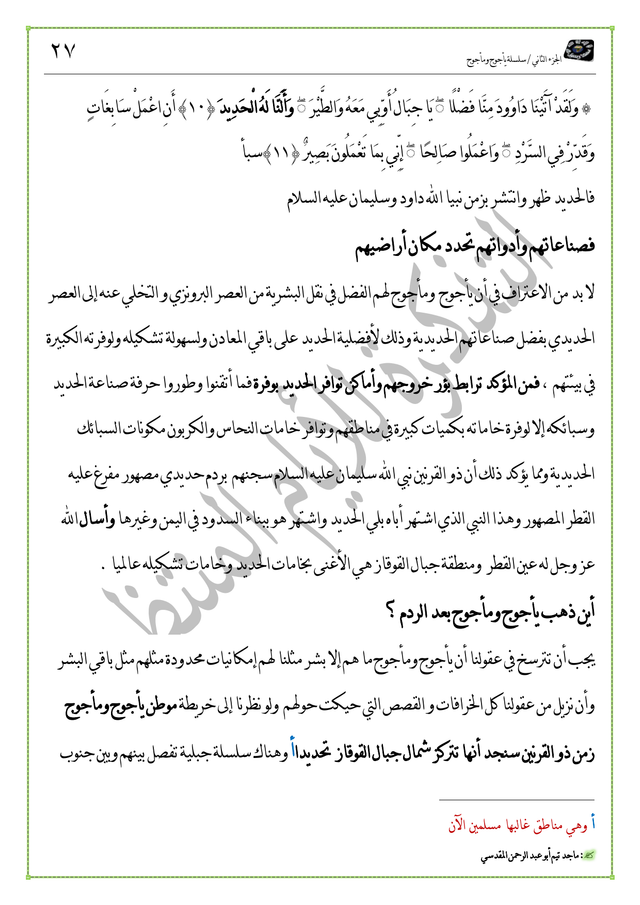 الجزء الثاني / سلسلة يأجوج ومأجوج
٢٧
﴿ وَلَقَدْ آتَيْنَا دَاوُودَ مِنَّا فَضْلًا ۖ يَا جِبَالُ أَوِّبِي مَعَهُ وَالطَّيْرَ ۖ وَأَلَنَّا لَهُ الْحَدِيدَ ﴿١٠﴾ أَنِ اعْمَلْ سَابِغَاتٍ
وَقَدِّرْ فِي السَّرْدِ ۖ وَاعْمَلُوا صَالِحًا ۖ إِنِّي بِمَا تَعْمَلُونَ بَصِيرٌ ﴿١١﴾ سبأ
فالحديد ظهر وانتشر بزمن نبيا الله داود وسليمان عليه السلام
فصناعاتهم وأدواتهم تحدد مكان أراضيهم
لا بد من الاعتراف في أن يأجوج ومأجوج لهم الفضل في نقل البشرية من العصر البرونزي و التخلي عنه إلى العصر
الحديدي بفضل صناعاتهم الحديدية وذلك لأفضلية الحديد على باقي المعادن ولسهولة تشكيله ولوفرته الكبيرة
في بيئتهم ، فمن المؤكد ترابط بؤر خروجهم وأماكن توافر الحديد بوفرة فما أتقنوا وطوروا حرفة صناعة الحديد
وسبائكه إلا لوفرة خاماته بكميات كبيرة في مناطقهم وتوافر خامات النحاس والكربون مكونات السبائك
الحديدية ومما يؤكد ذلك أن ذو القرنين نبي الله سليمان عليه السلام سجنهم بردم حديدي مصهور مفرغ عليه
القطر المصهور وهذا النبي الذي اشتهر أباه بلي الحديد واشتهر هو ببناء السدود في اليمن وغيرها وأسال الله
عز وجل له عين القطر ومنطقة جبال القوقاز هي الأغنى بخامات الحديد وخامات تشكيله عالميا .
أين ذهب يأجوج ومأجوج بعد الردم ؟
يجب أن تترسخ في عقولنا أن يأجوج ومأجوج ما هم إلا بشر مثلنا لهم إمكانيات محدودة مثلهم مثل باقي البشر
وأن نزيل من عقولنا كل الخرافات و القصص التي حيكت حولهم ولو نظرنا إلى خريطة موطن يأجوج ومأجوج
زمن ذو القرنين سنجد أنها تتركز شمال جبال القوقاز تحديدا أ وهناك سلسلة جبلية تفصل بينهم وبين جنوب
أ وهي مناطق غالبها مسلمين الآن
: ماجد تيم أبو عبد الرحمن المقدسي